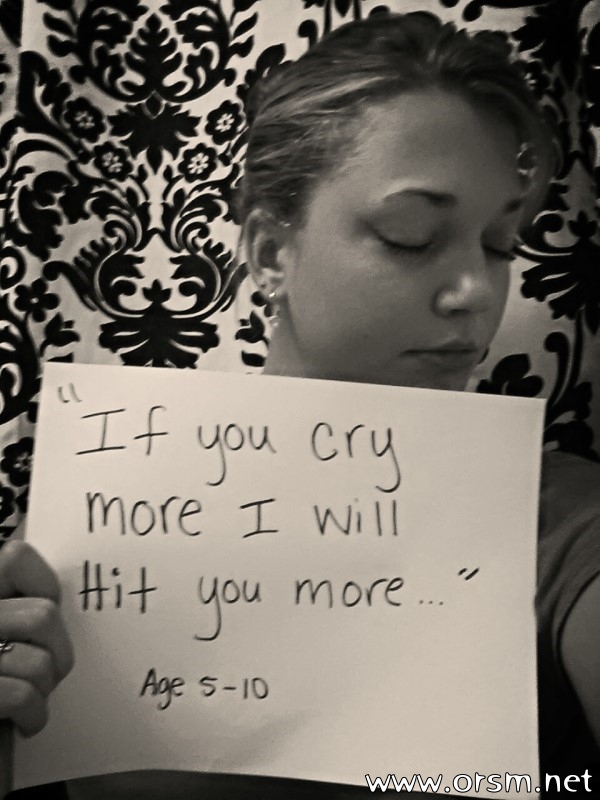 "If you cry
more I will
Hit you more..."
Age 5-10
www.orsm.net